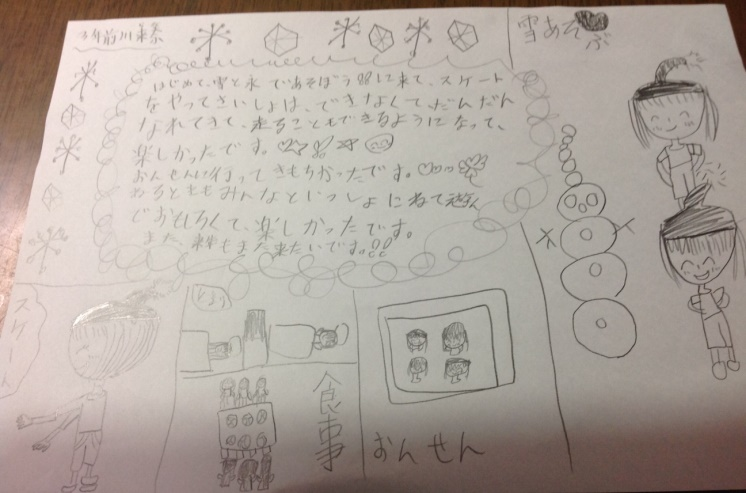 3年前川
雪あそぶ
はじめて、雪と氷であそぼう!!に来て、スケート
をやってさいしょは、できなくて、だんだん
なれてきて、走ることもできるようになって、
楽しかったです。
おんせんに行ってきもちかったです。
ねるときもみんなといっしょにねて
でおもしろくて、楽しかったです。
また、来年もまた来たいです!!
スケート
食事
おんせん